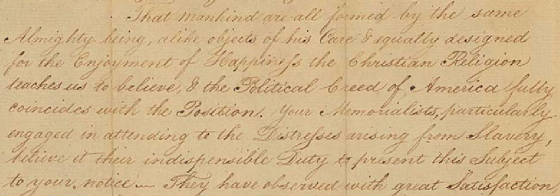 That mankind are all formed by the same
Almighty being, alike objects of his Care & equally designed
for the Enjoyment of Happiness the Christian Religion
teaches us to believe, & the Political Creed of America fully
coincides with the Position. Your Memorialists, particularly
engaged in attending to the Distresses arising from Slavery,
believe it their indispensible Duty to present this Subject
to your notice — They have observed with great Satisfaction